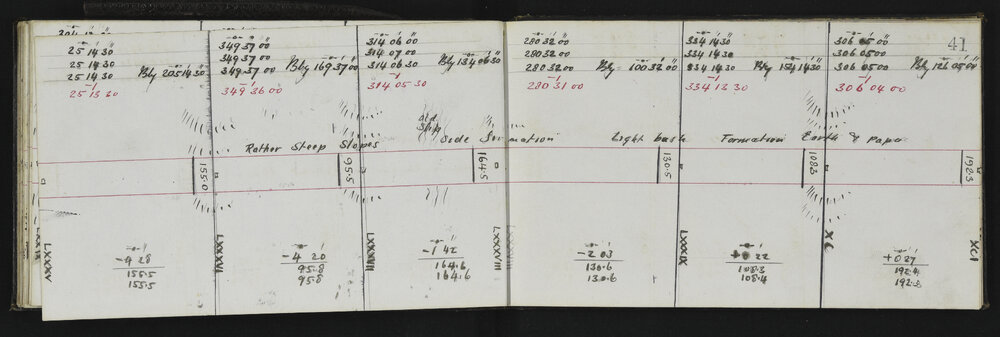 41
25 14 30
25 14 30
25 14 30 Bkg 205 14 30
-1
25 13 30
349 37 00
349 37 00
349 37 00 Bkg 169 37 00
-1
349 36 00
314 06 00
314 07 00
314 06 30 Bkg 134 06 30
-1
314 05 30
280 32 00
280 32 00
280 32 00 Bkg 100 32 00
-1
280 31 00
334 14 30
334 14 30
334 14 30 Bkg 154 14 30
-1
334 13 30
306 05 00
306 05 00
306 05 00 Bkg 126 05 00
-1
306 04 00
Old
Slip
Rather Steep Slopes Side formation Light bush Formation Earth & Papa
155.0
95.5
164.5
130.5
108.3
192.3
LXXXV
LXXXVI
LXXXVII
LXXXVIII
LXXXIX
XC
XCI
-4 28
155.5
155.5
-4 20
95.8
95.8
-1 42
164.6
164.6
-2 03
130.6
130.6
22
108.3
108.4
+0 27
192.4
192.8